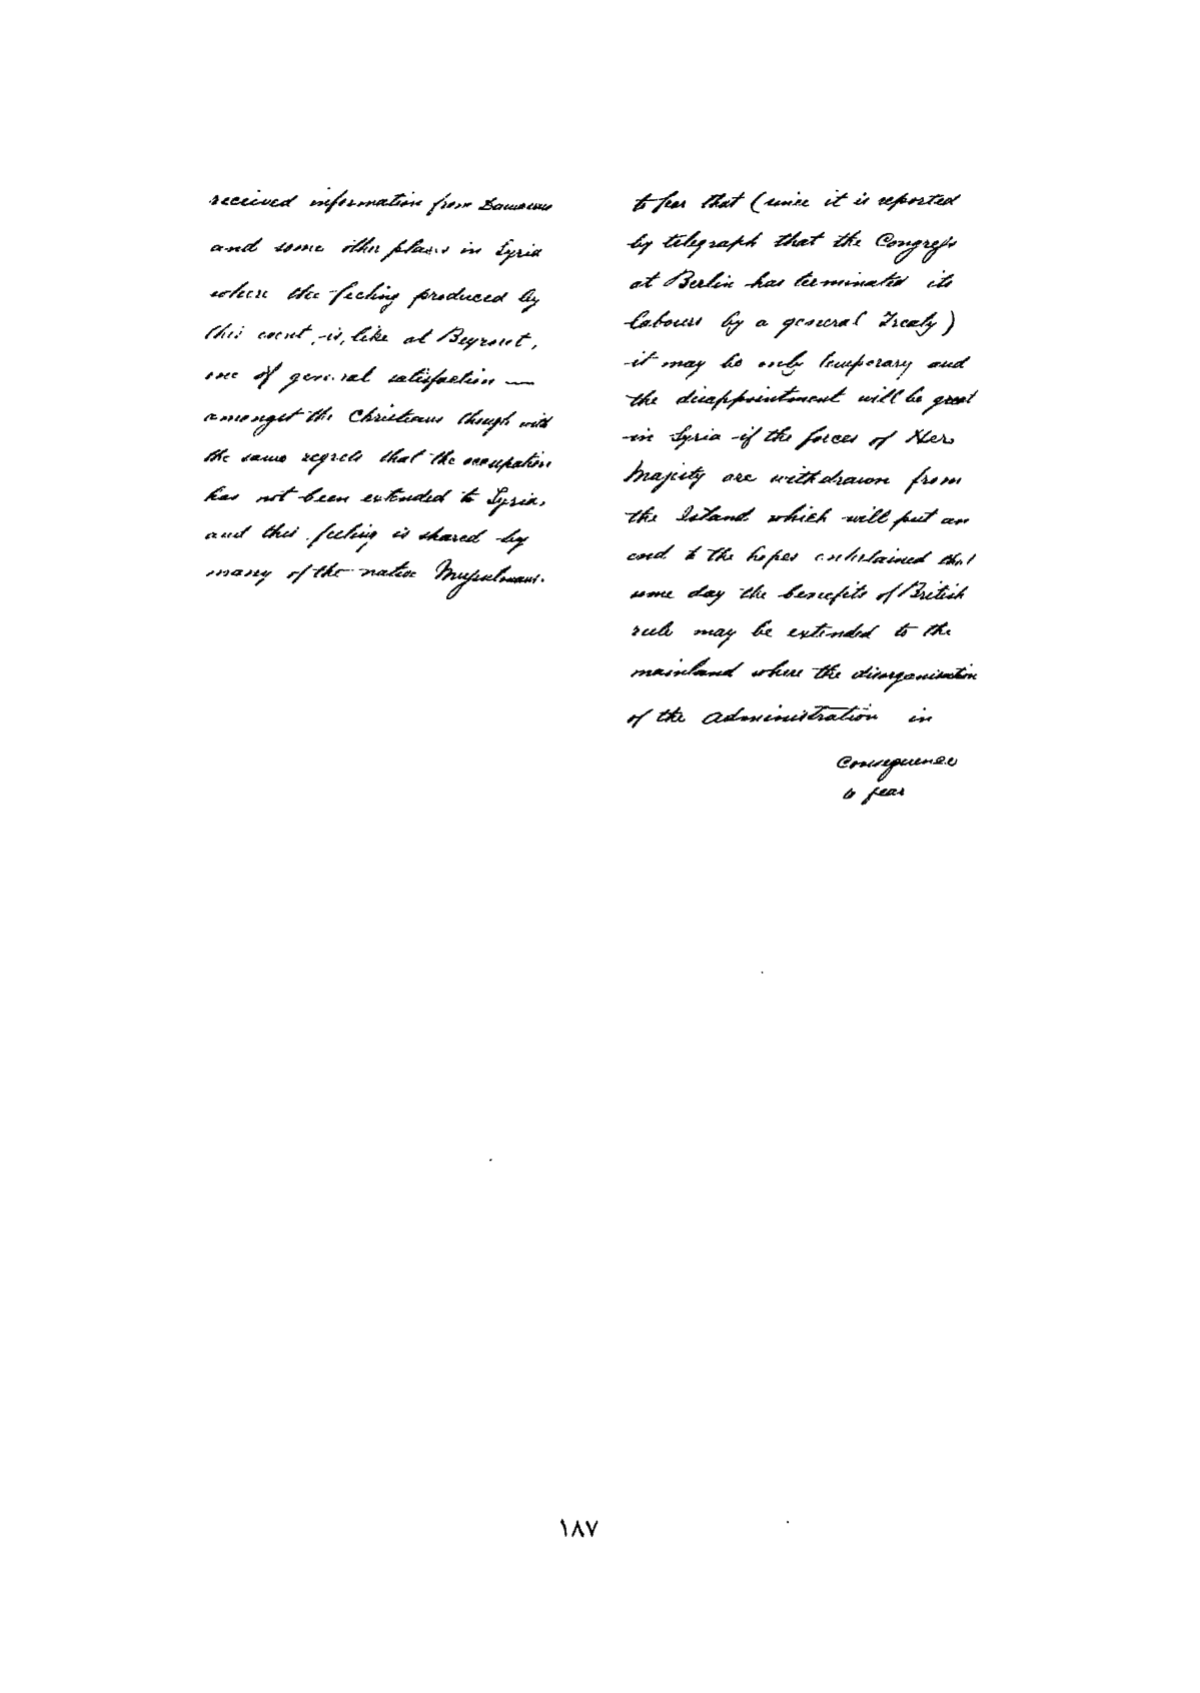 received information from Damascus
and some other places in Syria
where the feeling produced by
this event, is, like at Beyrout,
one of general satisfaction —
amongst the Christians though with
the same regrets that the occupation
has not been extended to Syria,
and this feeling is shared by
many of the native Mussulmans.
to fear that (since it is reported
by telegraph that the Congress
at Berlin has terminated its
labours by a general Treaty)
it may be only temporary and
the disappointment will be great
in Syria if the forces of Her
Majesty are withdrawn from
the Island which will put an
end to the hopes entertained that
some day the benefits of British
rule may be extended to the
mainland where the disorganisation
of the administration in
Consequence
to fear
١٨٧